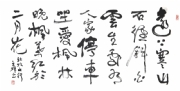 遠上寒山
石徑斜白
雲生處有
人家停車
坐愛楓林
晚霜葉紅於
二月花